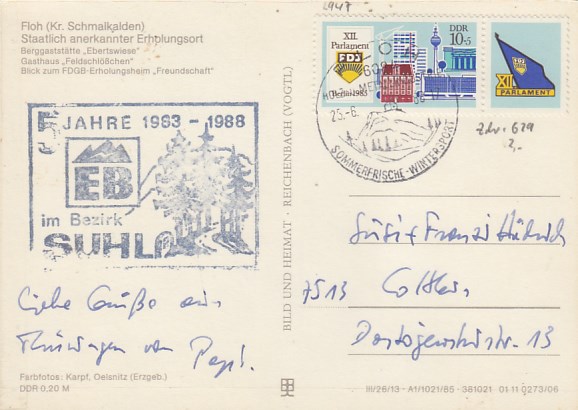 2947
Floh (Kr. Schmalkalden)
Staatlich anerkannter Erholungsort
Berggaststätte „Ebertswiese"
Gasthaus „Feldschlößchen"
Blick zum FDGB-Erholungsheim „Freundschaft"
XII.
Parlament
FDJ
Berlin 1985
DDR
10+5
FDJ
XII
PARLAMENT
25.-6.
SOMMERFRISCHE-WINTERSPORT
Zdr. 679
2,-
5 JAHRE 1983 - 1988
EB
im Bezirk
SUHL
BILD UND HEIMAT · REICHENBACH (VOGTL)
7513 Cottbus
Dostojewskistr. 13
Liebe Grüße aus
Thüringen von Papi.
Farbfotos: Karpf, Oelsnitz (Erzgeb.)
DDR 0,20 M
III/26/13 · A1/1021/85 · 381021 01 11 0273/06